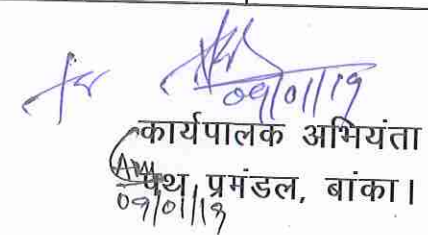 09/01/19
कार्यपालक अभियंता
पथ प्रमंडल, बांका।
09/01/19